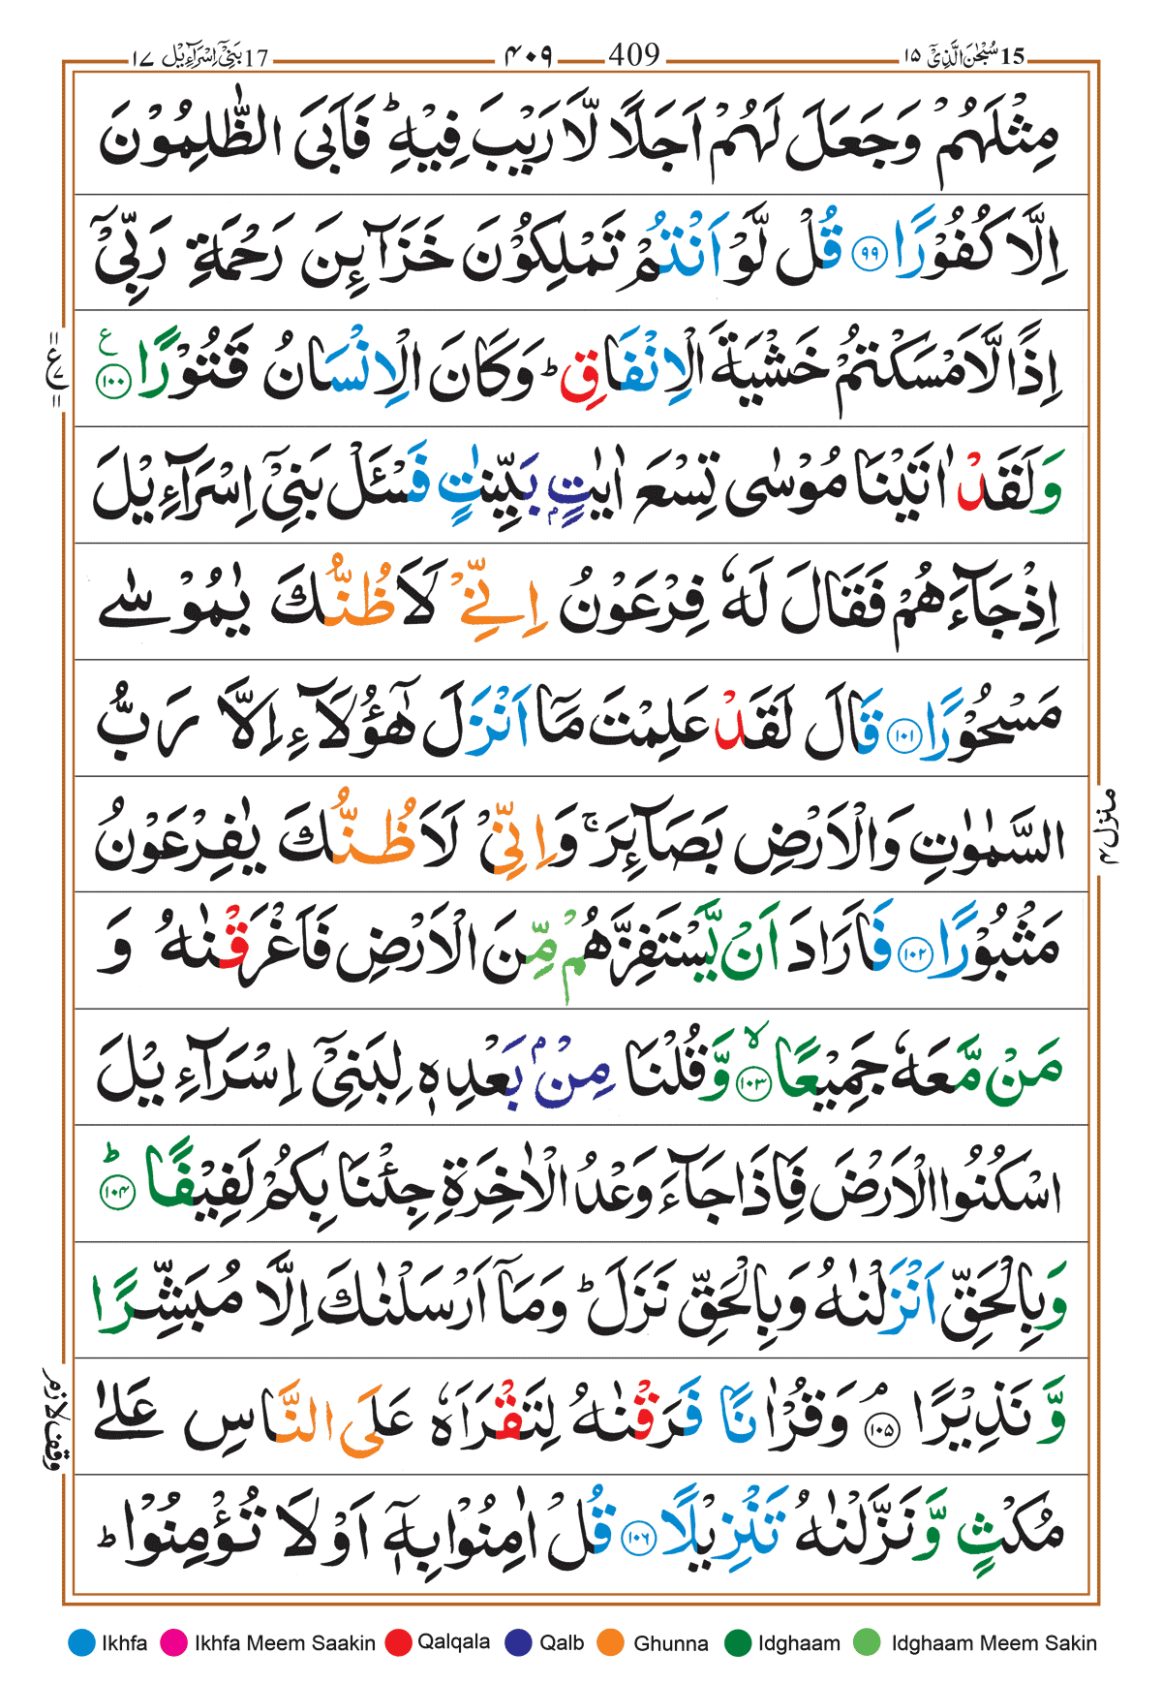 15 سُبْحٰنَ الَّذِيْۤ ١٥ 409 ۴۰۹ 17 بَنِيْۤ اِسْرَآءِيْل ١٧
مِثْلَهُمْ وَجَعَلَ لَهُمْ اَجَلًا لَّا رَيْبَ فِيْهِ ؕ فَاَبَى الظّٰلِمُوْنَ
اِلَّا كُفُوْرًا ﴿٩٩﴾ قُلْ لَّوْ اَنْتُمْ تَمْلِكُوْنَ خَزَآئِنَ رَحْمَةِ رَبِّيْۤ
اِذًا لَّاَمْسَكْتُمْ خَشْيَةَ الْاِنْفَاقِ ؕ وَكَانَ الْاِنْسَانُ قَتُوْرًا ﴿١٠٠﴾ ع
= ع ٧ =
وَلَقَدْ اٰتَيْنَا مُوْسٰى تِسْعَ اٰيٰتٍۭ بَيِّنٰتٍ فَسْـَٔلْ بَنِيْۤ اِسْرَآءِيْلَ
اِذْ جَآءَهُمْ فَقَالَ لَهٗ فِرْعَوْنُ اِنِّيْ لَاَظُنُّكَ يٰمُوْسٰى
مَسْحُوْرًا ﴿١٠١﴾ قَالَ لَقَدْ عَلِمْتَ مَاۤ اَنْزَلَ هٰۤؤُلَآءِ اِلَّا رَبُّ
السَّمٰوٰتِ وَالْاَرْضِ بَصَآئِرَ ۚ وَاِنِّيْ لَاَظُنُّكَ يٰفِرْعَوْنُ
منزل ۴
مَثْبُوْرًا ﴿١٠٢﴾ فَاَرَادَ اَنْ يَّسْتَفِزَّهُمْ مِّنَ الْاَرْضِ فَاَغْرَقْنٰهُ وَ
مَنْ مَّعَهٗ جَمِيْعًا ۙ﴿١٠٣﴾ وَّقُلْنَا مِنْۢ بَعْدِهٖ لِبَنِيْۤ اِسْرَآءِيْلَ
اسْكُنُوا الْاَرْضَ فَاِذَا جَآءَ وَعْدُ الْاٰخِرَةِ جِئْنَا بِكُمْ لَفِيْفًا ؕ﴿١٠٤﴾
وَبِالْحَقِّ اَنْزَلْنٰهُ وَبِالْحَقِّ نَزَلَ ؕ وَمَاۤ اَرْسَلْنٰكَ اِلَّا مُبَشِّرًا
وَّنَذِيْرًا ۘ﴿١٠٥﴾ وَقُرْاٰنًا فَرَقْنٰهُ لِتَقْرَاَهٗ عَلَى النَّاسِ عَلٰى
وقف لازم
مُكْثٍ وَّنَزَّلْنٰهُ تَنْزِيْلًا ﴿١٠٦﴾ قُلْ اٰمِنُوْا بِهٖۤ اَوْ لَا تُؤْمِنُوْا ؕ
Ikhfa Ikhfa Meem Saakin Qalqala Qalb Ghunna Idghaam Idghaam Meem Sakin